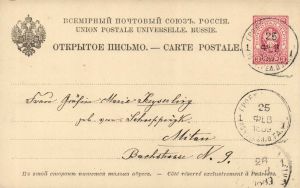 ВСЕМІРНЫЙ ПОЧТОВЫЙ СОЮЗЪ. РОССІЯ.
UNION POSTALE UNIVERSELLE. RUSSIE.
ОТКРЫТОЕ ПИСЬМО. — CARTE POSTALE.
25
Frau Gräfin Marie Keyserling
geb. von
Mitau
Bachstrasse N. 9.
25
ФЕВ
1889
На этой сторонѣ пишется только адресъ. — Côté réservé exclusivement à l'adresse.